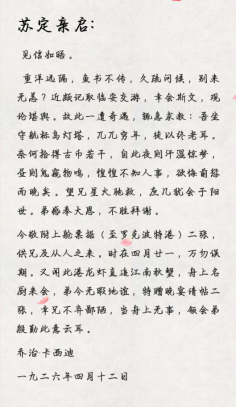 苏定亲启：
见信如晤。
重洋远隔，鱼书不传，久疏问候，别来
无恙？近颇记取临安交游，幸会斯文，观
论堪舆。故此一遭奇遇，辄急求教：吾坐
守航标岛灯塔，兀兀穷年，徒以终老耳。
奈何拾得古币若干，自此夜则汗湿惊梦，
昼则鬼窥物鸣，惶惶不知人事，欲悔前路
而晚矣。望兄星火驰救，庶几犹会于阳
世。弟感奉大恩，不胜拜谢。
今敬附上船票据（至罗克波特港）二张，
供兄及从人之来。时在四月廿一，万勿误
期。又闻此港龙虾直追江南秋蟹，舟上名
厨来会，弟今无暇地谊，特赠晚宴请帖二
张，幸兄不弃鄙陋，当舟上无事，领会弟
殷勤此意云耳。
乔治·卡西迪
一九二六年四月十二日